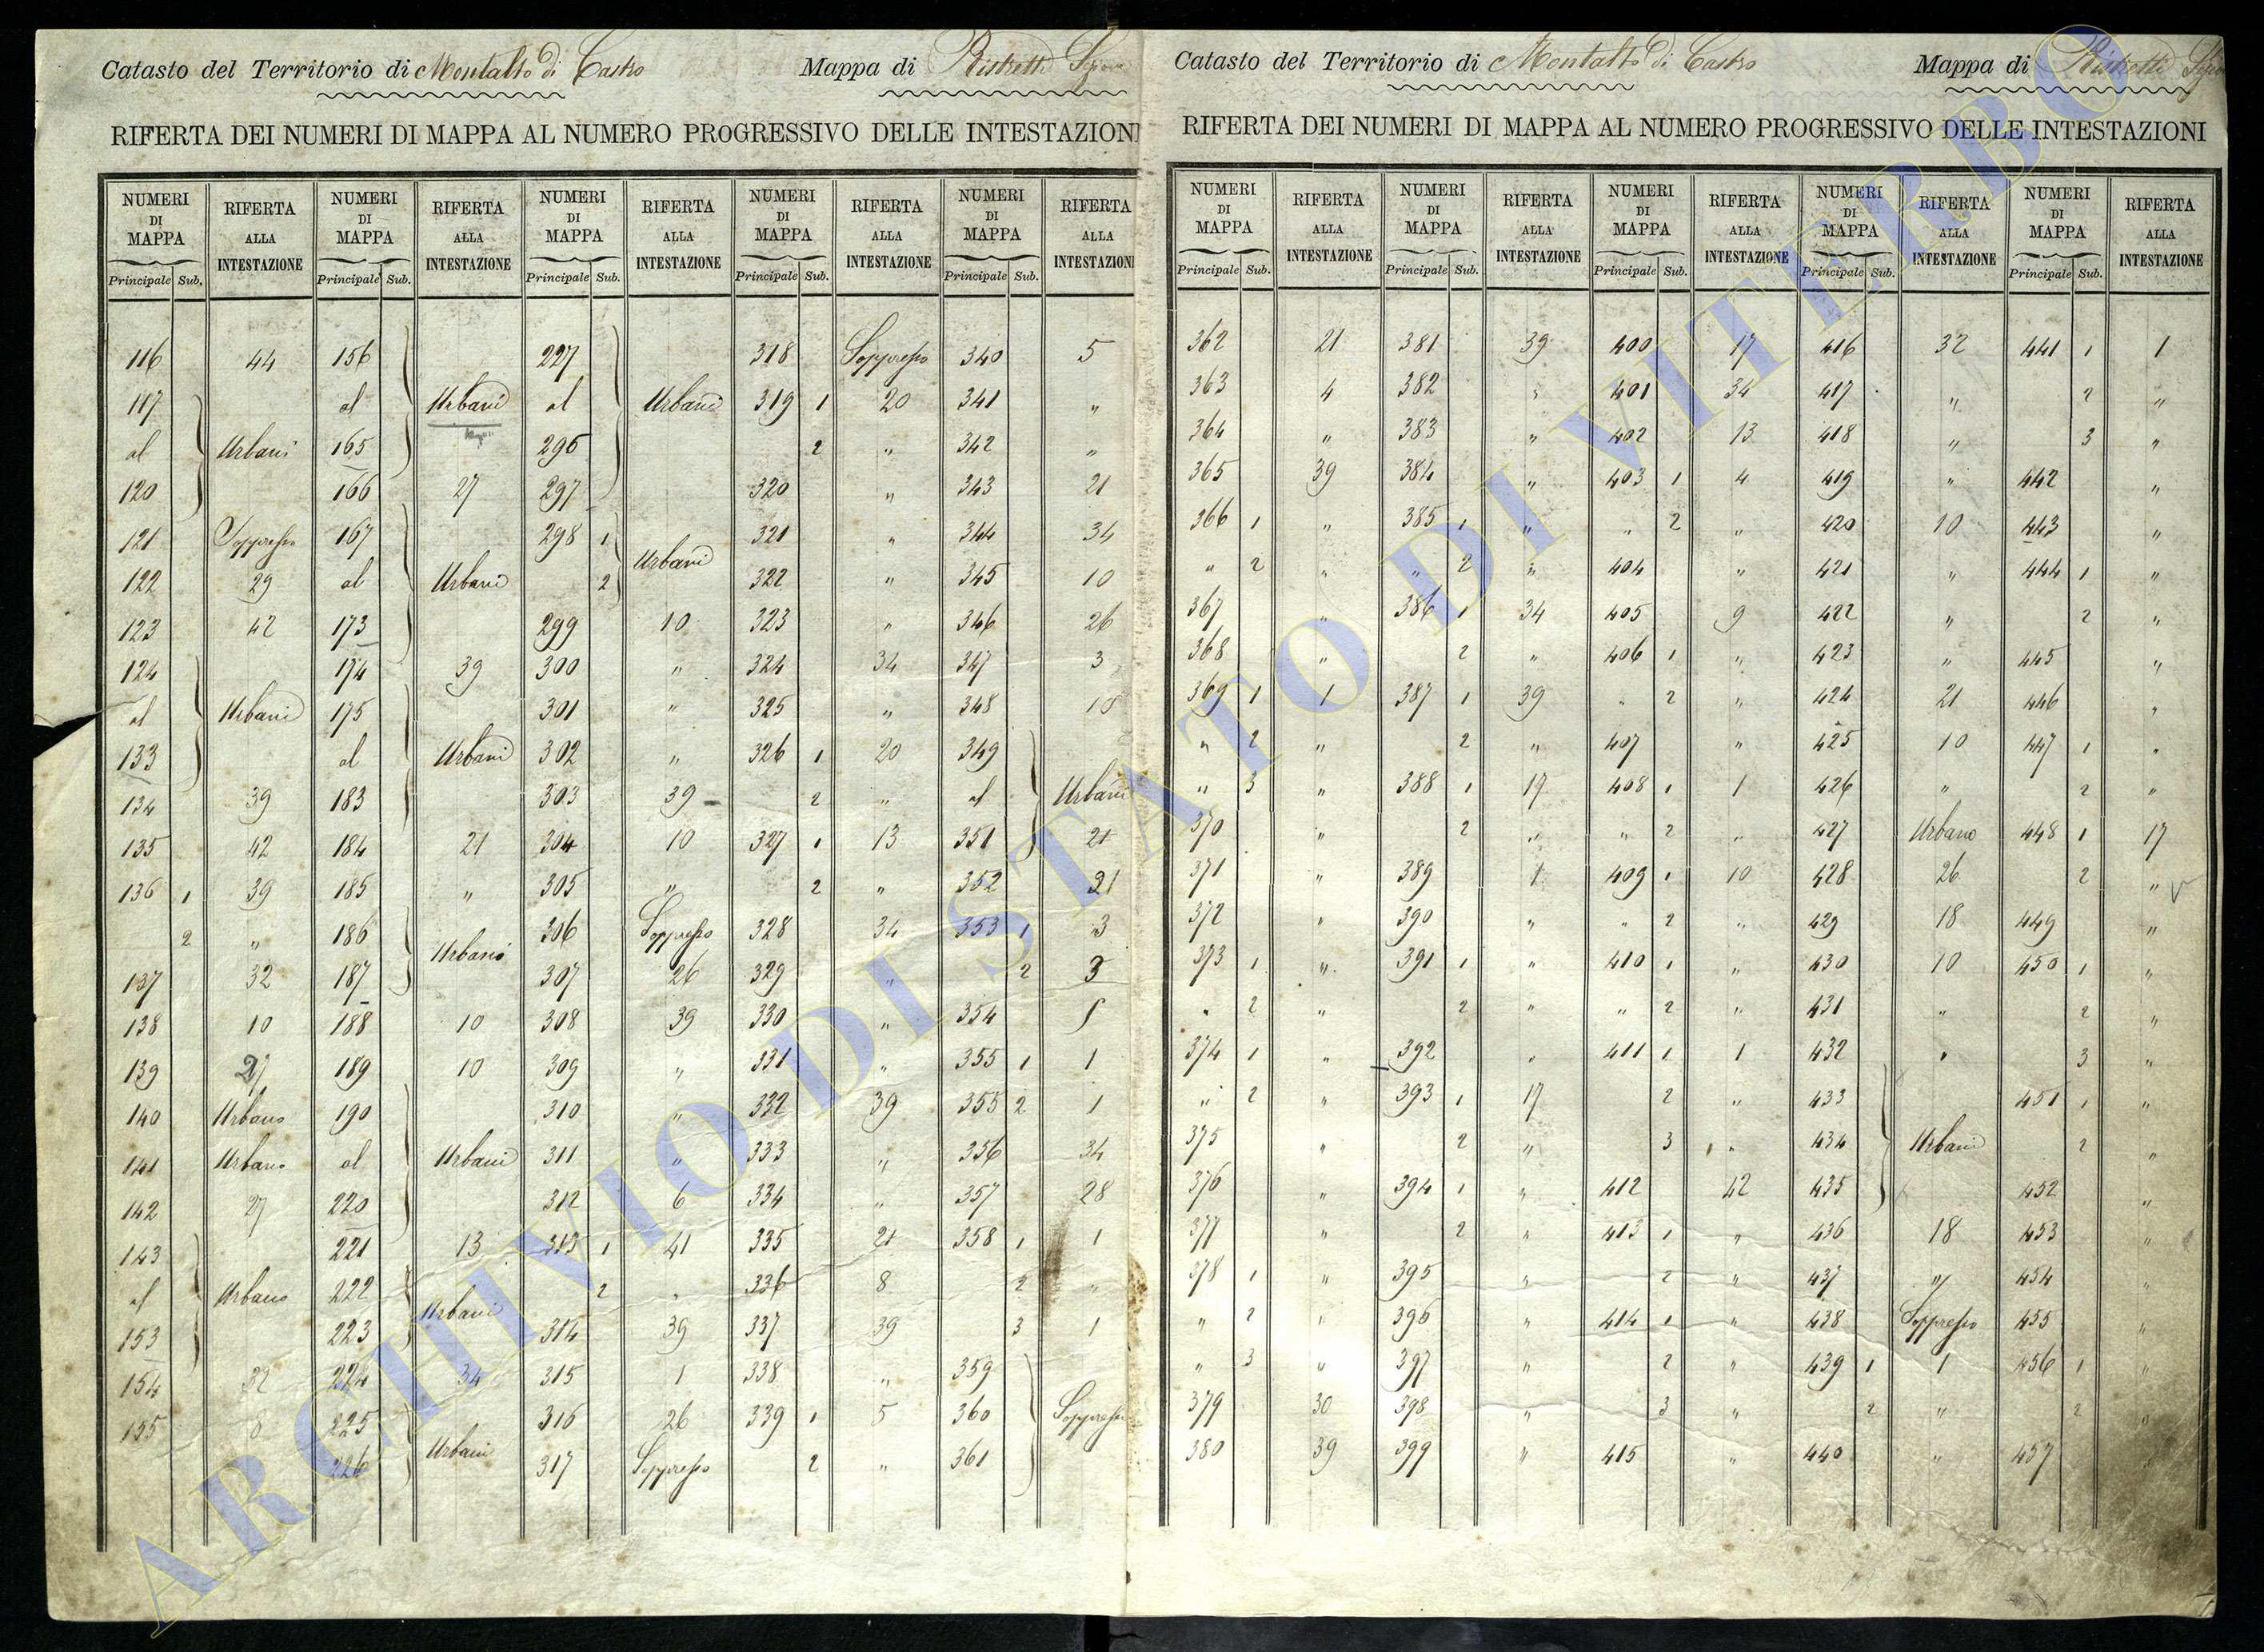 Catasto del Territorio di Montalto di Castro Mappa di Ristretti
RIFERTA DEI NUMERI DI MAPPA AL NUMERO PROGRESSIVO DELLE INTESTAZIONI
NUMERI DI MAPPA RIFERTA ALLA INTESTAZIONE NUMERI DI MAPPA RIFERTA ALLA INTESTAZIONE NUMERI DI MAPPA RIFERTA ALLA INTESTAZIONE NUMERI DI MAPPA RIFERTA ALLA INTESTAZIONE NUMERI DI MAPPA RIFERTA ALLA INTESTAZION
Principale Sub. Principale Sub. Principale Sub. Principale Sub. Principale Sub.
116 44 156 227 318 Soppresso 340 5
117 al Urbani al Urbani 319 1 20 341 "
al Urbani 165 296 2 " 342 "
120 166 27 297 320 " 343 21
121 Soppresso 167 298 1 Urbani 321 " 344 34
122 29 al Urbani 2 322 " 345 10
123 42 173 299 10 323 " 346 26
124 174 39 300 " 324 34 347 3
al Urbani 175 301 " 325 " 348 18
133 al Urbani 302 " 326 1 20 349
134 39 183 303 39 2 " al Urbani
135 42 184 21 304 10 327 1 13 351 21
136 1 39 185 " 305 " 2 " 352 21
2 " 186 Urbani 306 Soppresso 328 34 353 1 3
137 32 187 307 26 329 " 2 3
138 10 188 10 308 39 330 " 354
139 27 189 10 309 " 331 " 355 1 1
140 Urbano 190 310 " 332 39 355 2 1
141 Urbano al Urbani 311 " 333 " 356 34
142 27 220 312 6 334 " 357 28
143 221 13 313 1 41 335 21 358 1 1
al Urbano 222 Urbani 2 " 336 8 2 "
153 223 314 39 337 39 3 1
154 32 224 34 315 1 338 " 359
155 8 225 Urbani 316 26 339 1 5 360 Soppressi
226 317 Soppresso 2 " 361
Catasto del Territorio di Montalto di Castro Mappa di Ristretti
RIFERTA DEI NUMERI DI MAPPA AL NUMERO PROGRESSIVO DELLE INTESTAZIONI
NUMERI DI MAPPA RIFERTA ALLA INTESTAZIONE NUMERI DI MAPPA RIFERTA ALLA INTESTAZIONE NUMERI DI MAPPA RIFERTA ALLA INTESTAZIONE NUMERI DI MAPPA RIFERTA ALLA INTESTAZIONE NUMERI DI MAPPA RIFERTA ALLA INTESTAZIONE
Principale Sub. Principale Sub. Principale Sub. Principale Sub. Principale Sub.
362 21 381 39 400 17 416 32 441 1 1
363 4 382 " 401 34 417 " 2 "
364 " 383 " 402 13 418 " 3 "
365 39 384 " 403 1 4 419 " 442 "
366 1 " 385 1 " " 2 " 420 10 443 "
" 2 " " 2 " 404 " 421 " 444 1 "
367 " 386 1 34 405 9 422 " 2 "
368 " 2 " 406 1 " 423 " 445 "
369 1 1 387 1 39 " 2 " 424 21 446 "
" 2 " 2 " 407 " 425 10 447 1 "
" 3 " 388 1 17 408 1 1 426 " 2 "
370 " 2 " " 2 " 427 Urbano 448 1 17
371 " 389 1 409 1 10 428 26 2 "
372 " 390 " " 2 " 429 18 449 "
373 1 " 391 1 " 410 1 " 430 10 450 1 "
" 2 " 2 " " 2 " 431 " 2 "
374 1 " 392 " 411 1 1 432 " 3 "
" 2 " 393 1 17 2 " 433 451 1 "
375 " 2 " 3 " 434 Urbani 2 "
376 " 394 1 " 412 42 435 452 "
377 " 2 " 413 1 " 436 18 453 "
378 1 " 395 " 2 " 437 " 454 "
" 2 " 396 " 414 1 " 438 Soppresso 455 "
" 3 " 397 " 2 " 439 1 1 456 1 "
379 30 398 " 3 " 2 " 2 "
380 39 399 " 415 " 440 " 457
ARCHIVIO DI STATO DI VITERBO